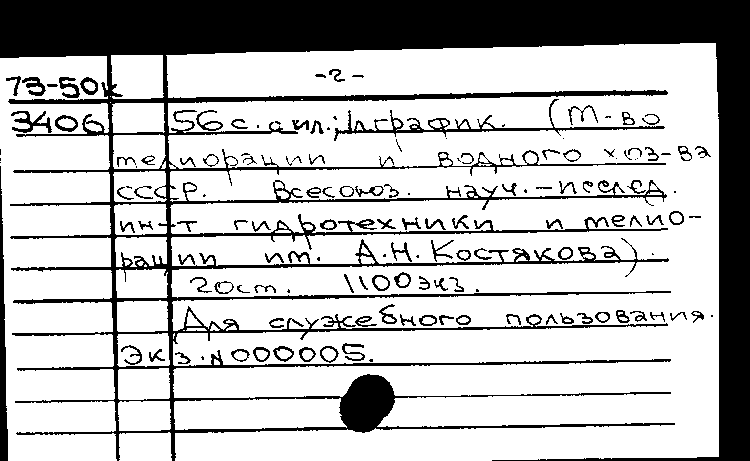 73-50к -2-
3406 56 с. с ил.; 1л. график. (М-во
мелиорации и водного хоз-ва
СССР. Всесоюз. науч.-исслед.
ин-т гидротехники и мелио-
рации им. А.Н. Костякова).
20см. 1100 экз.
Для служебного пользования.
Экз. N 000005.